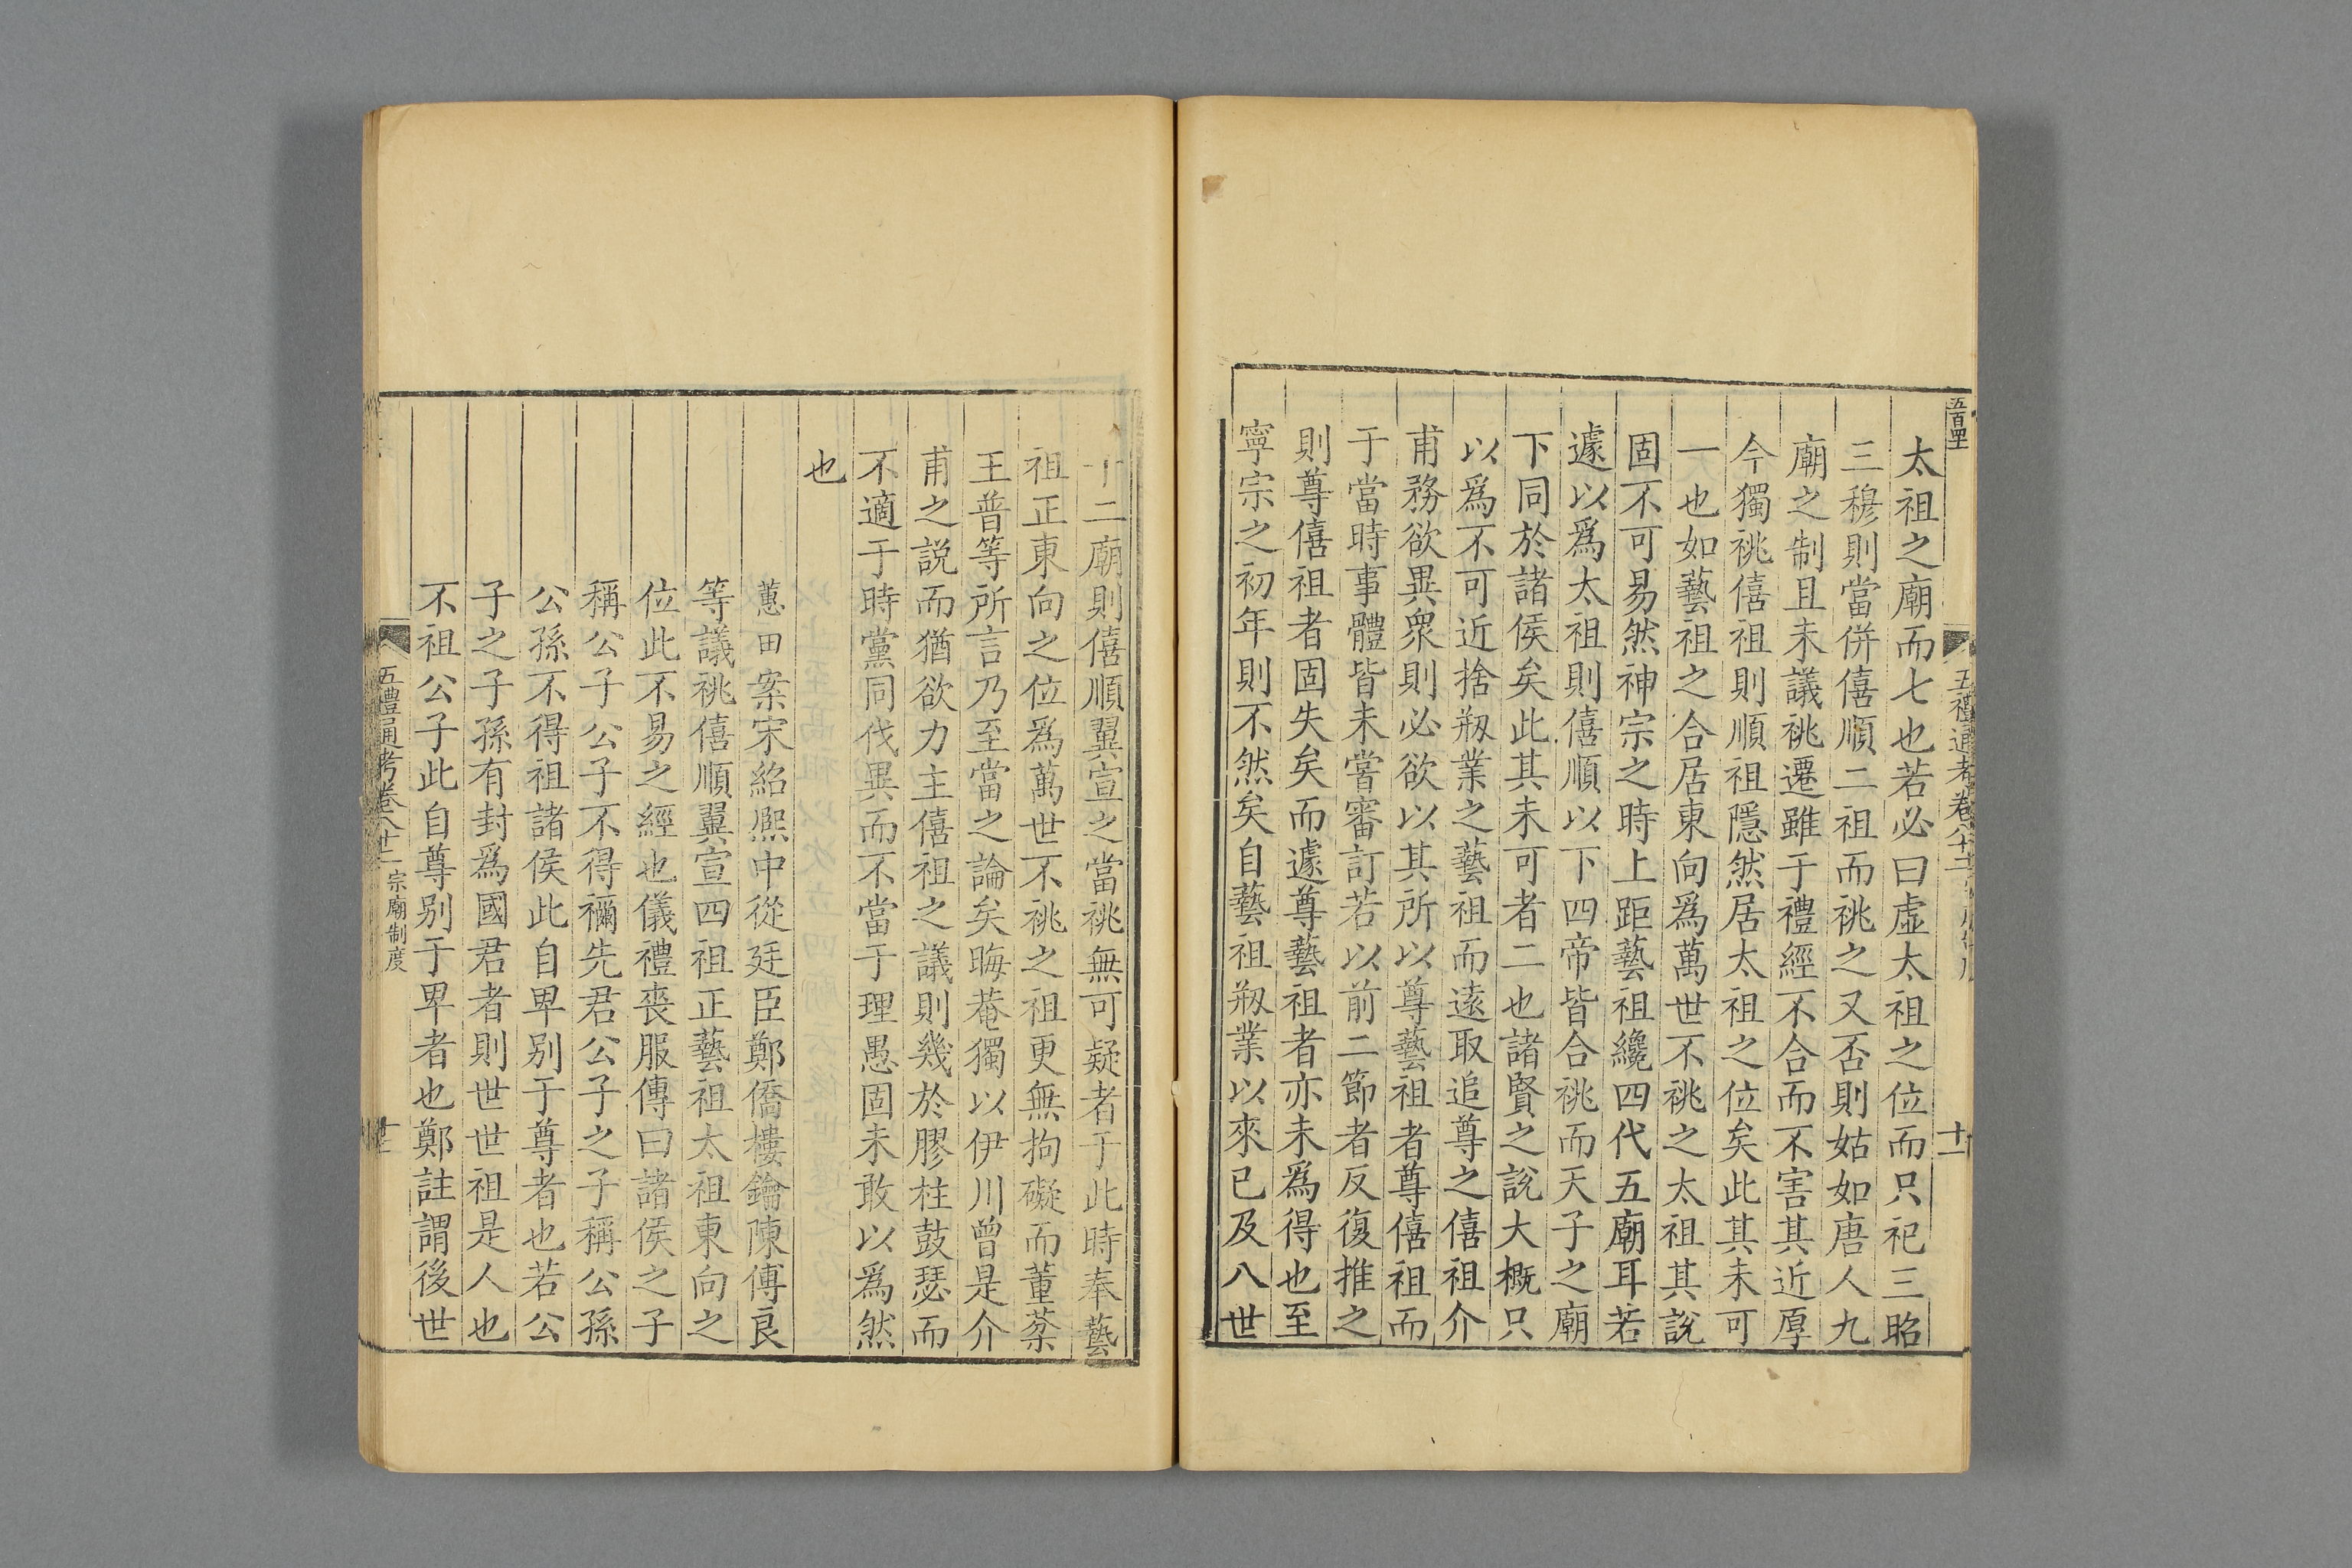 五禮通考卷八十二
十二
太祖之廟而七也若必曰虛太祖之位而只祀三昭
三穆則當併僖順二祖而祧之又否則姑如唐人九
廟之制且未議祧遷雖于禮經不合而不害其近厚
今獨祧僖祖則順祖隱然居太祖之位矣此其未可
一也如藝祖之合居東向爲萬世不祧之太祖其說
固不可易然神宗之時上距藝祖纔四代五廟耳若
遽以爲太祖則僖順以下四帝皆合祧而天子之廟
下同於諸侯矣此其未可者二也諸賢之說大概只
以爲不可近捨剏業之藝祖而遠取追尊之僖祖介
甫務欲異衆則必欲以其所以尊藝祖者尊僖祖而
于當時事體皆未嘗審訂若以前二節者反復推之
則尊僖祖者固失矣而遽尊藝祖者亦未爲得也至
寧宗之初年則不然矣自藝祖剏業以來已及八世
十二廟則僖順翼宣之當祧無可疑者于此時奉藝
祖正東向之位爲萬世不祧之祖更無拘礙而董棻
王普等所言乃至當之論矣晦菴獨以伊川曾是介
甫之說而猶欲力主僖祖之議則幾於膠柱鼓瑟而
不適于時黨同伐異而不當于理愚固未敢以爲然
也
蕙田案宋紹熈中從廷臣鄭僑樓鑰陳傅良
等議祧僖順翼宣四祖正藝祖太祖東向之
位此不易之經也儀禮喪服傳曰諸侯之子
稱公子公子不得禰先君公子之子稱公孫
公孫不得祖諸侯此自卑别于尊者也若公
子之子孫有封爲國君者則世世祖是人也
不祖公子此自尊别于卑者也鄭註謂後世
五禮通考卷八十二 宗廟制度